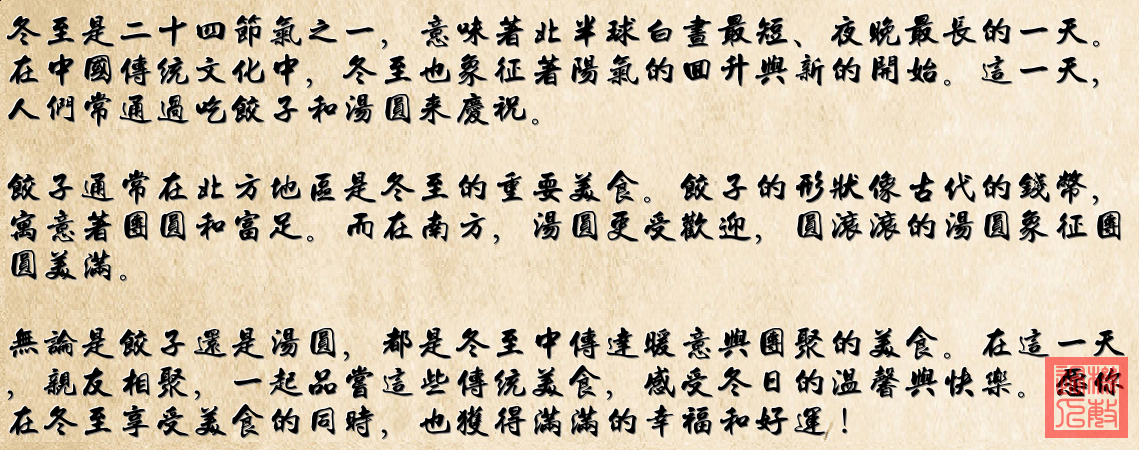 冬至是二十四節氣之一，意味著北半球白晝最短、夜晚最長的一天。
在中國傳統文化中，冬至也象征著陽氣的回升與新的開始。這一天，
人們常通過吃餃子和湯圓来慶祝。
餃子通常在北方地區是冬至的重要美食。餃子的形狀像古代的錢幣，
寓意著團圓和富足。而在南方，湯圓更受歡迎，圓滾滾的湯圓象征團
圓美滿。
無論是餃子還是湯圓，都是冬至中傳達暖意與團聚的美食。在這一天
，親友相聚，一起品嘗這些傳統美食，感受冬日的溫馨與快樂。愿你
在冬至享受美食的同時，也獲得滿滿的幸福和好運！